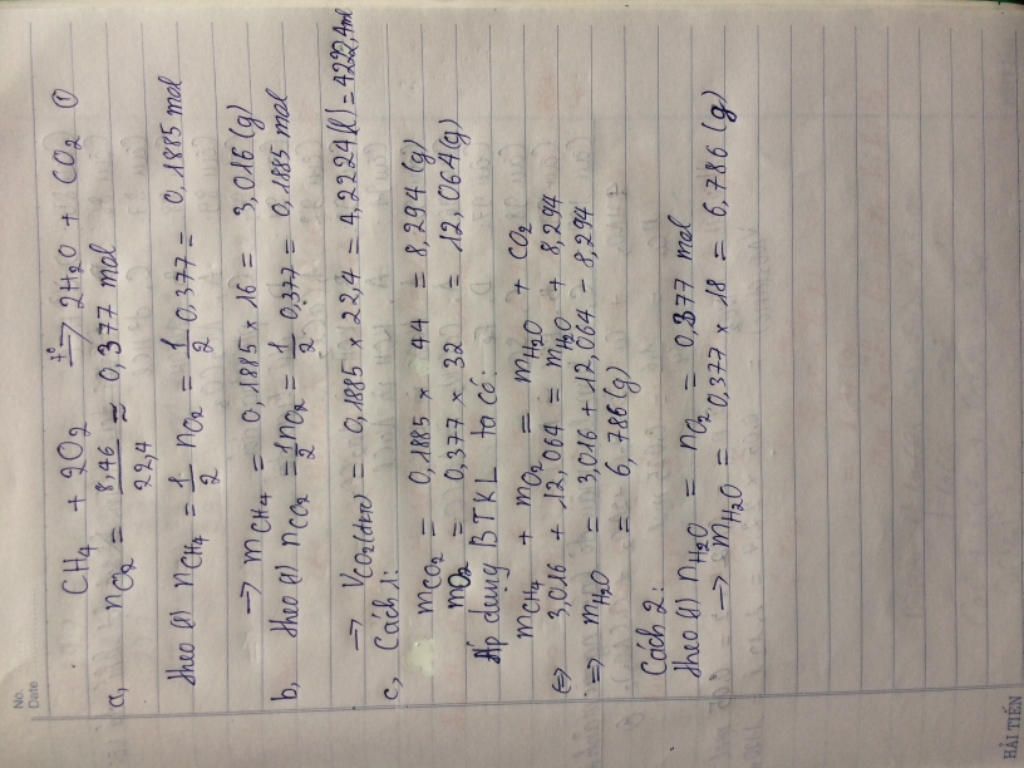 No.
Date
CH4 + 2O2 t° → 2H2O + CO2 (1)
a, nO2 = 8,46 / 22,4 ≈ 0,377 mol
theo (1) nCH4 = 1/2 nO2 = 1/2 0.377 = 0,1885 mol
→ mCH4 = 0,1885 × 16 = 3,016 (g)
b, theo (1) nCO2 = 1/2 nO2 = 1/2 0,377 = 0,1885 mol
→ VCO2(đktc) = 0,1885 × 22,4 = 4,2224 (l) = 4222,4 ml
c, Cách 1:
mCO2 = 0,1885 × 44 = 8,294 (g)
mO2 = 0,377 × 32 = 12,064 (g)
Áp dụng BTKL ta có:
mCH4 + mO2 = mH2O + CO2
(=) 3,016 + 12,064 = mH2O + 8,294
=> mH2O = 3,016 + 12,064 - 8,294
= 6,786 (g)
Cách 2:
theo (1) nH2O = nO2 = 0,377 mol
→ mH2O = 0,377 × 18 = 6,786 (g)
HẢI TIẾN